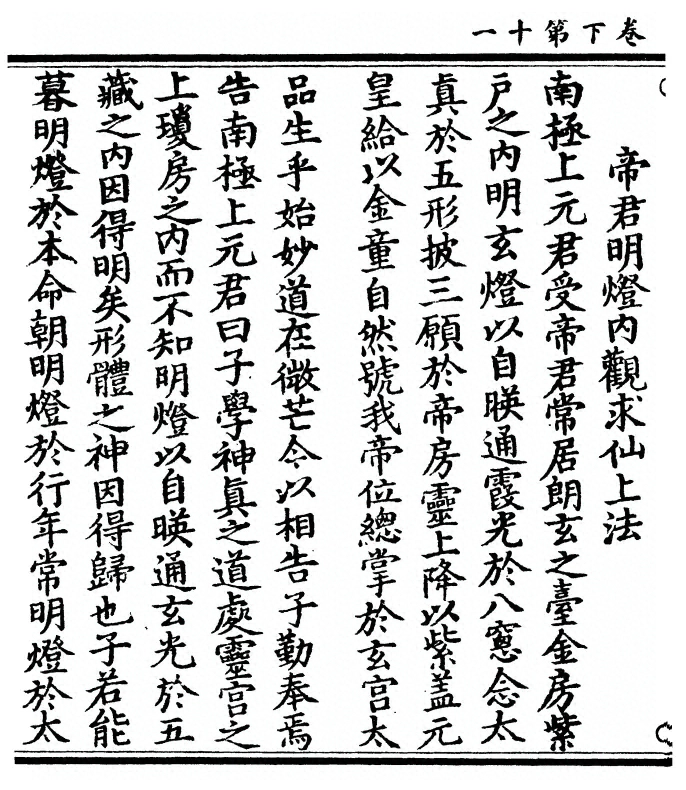 卷下第十一
帝君明燈内觀求仙上法
南極上元君受帝君常居朗玄之臺金房紫
戶之内明玄燈以自暎通霞光於八窻念太
眞於五形披三願於帝房靈上降以紫盖元
皇給以金童自然號我帝位總掌於玄宫太
品生乎始妙道在微芒今以相告子勤奉焉
告南極上元君曰子學神眞之道處靈宫之
上瓊房之内而不知明燈以自暎通玄光於五
藏之内因得明矣形體之神因得歸也子若能
暮明燈於本命朝明燈於行年常明燈於太